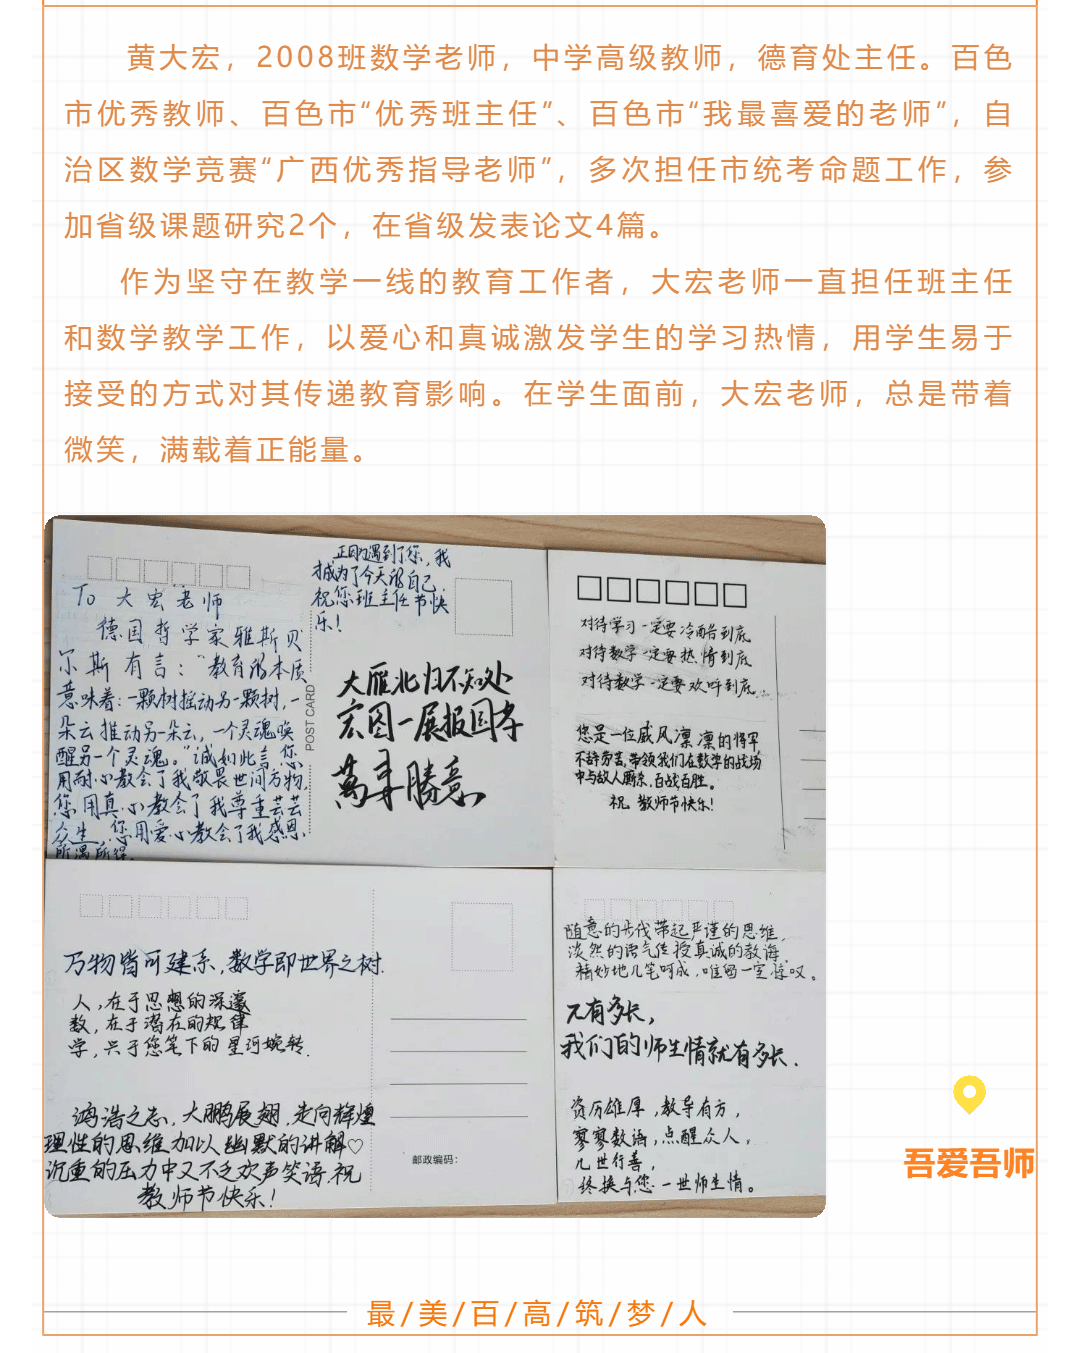 黄大宏，2008班数学老师，中学高级教师，德育处主任。百色
市优秀教师、百色市“优秀班主任”、百色市“我最喜爱的老师”，自
治区数学竞赛“广西优秀指导老师”，多次担任市统考命题工作，参
加省级课题研究2个，在省级发表论文4篇。
作为坚守在教学一线的教育工作者，大宏老师一直担任班主任
和数学教学工作，以爱心和真诚激发学生的学习热情，用学生易于
接受的方式对其传递教育影响。在学生面前，大宏老师，总是带着
微笑，满载着正能量。
To 大宏老师
德国哲学家雅斯贝
尔斯有言：“教育的本质
意味着：一颗树摇动另一颗树，一
朵云推动另一朵云，一个灵魂唤
醒另一个灵魂。”诚如此言，您
用耐心教会了我敬畏世间万物，
您用真心教会了我尊重芸芸
众生，您用爱心教会了我感恩
所遇所得。
正因遇到了您，我
才成为了今天的自己
祝您班主任节快
乐！
POST CARD
大雁北归不知处
宏图一展报国孝
萬事勝意
对待学习一定要冷酷到底
对待数学一定要热情到底
对待教学一定要欢呼到底
您是一位威风凛凛的将军
不辞劳苦，带领我们在数学的战场
中与敌人厮杀，百战百胜。
祝 教师节快乐！
万物皆可建系，数学即世界之树.
人，在于思想的深邃
数，在于潜在的规律
学，兴于您笔下的星河婉转.
鸿浩之志，大鹏展翅，走向辉煌
理性的思维加以幽默的讲解♡
沉重的压力中又不乏欢声笑语.祝
教师节快乐！
邮政编码：
随意的步伐带起严谨的思维，
淡然的语气传授真诚的教诲，
精妙地几笔呵成，唯留一室惊叹。
兀有多长，
我们的师生情就有多长.
资历雄厚，教导有方，
寥寥数语，点醒众人，
几世行善，
终换与您一世师生情。
吾爱吾师
最/美/百/高/筑/梦/人